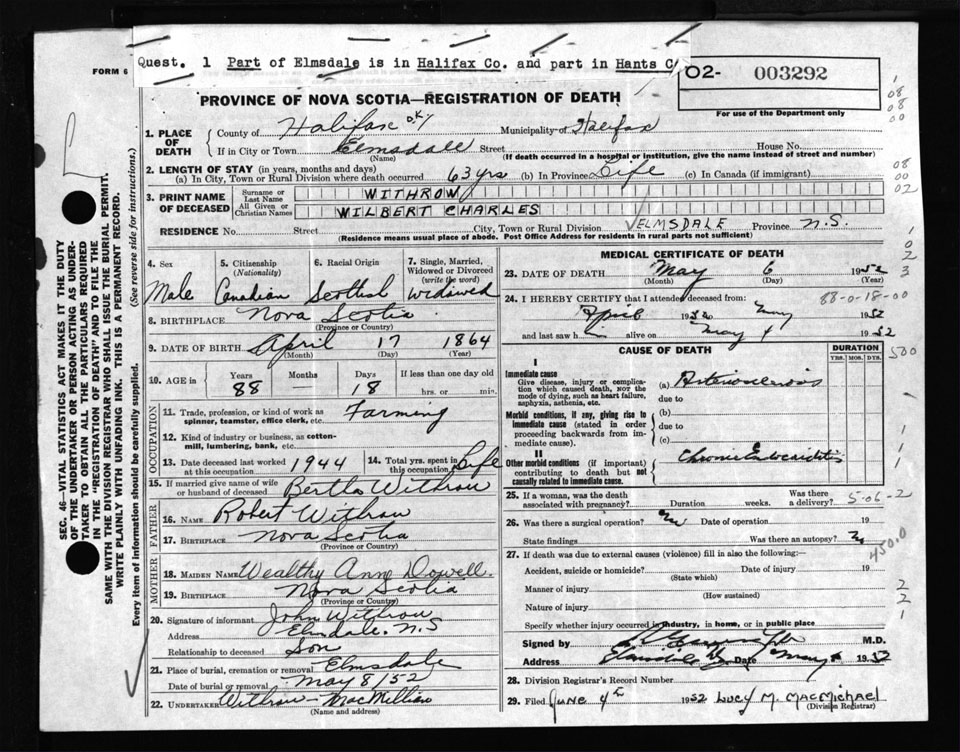 FORM 6
Quest. 1 Part of Elmsdale is in Halifax Co. and part in Hants C
02- 003292
For use of the Department only
PROVINCE OF NOVA SCOTIA—REGISTRATION OF DEATH
1. PLACE OF DEATH
County of Halifax OK Municipality of Halifax
If in City or Town Elmsdale Street House No.
(Name) (If death occurred in a hospital or institution, give the name instead of street and number)
2. LENGTH OF STAY (in years, months and days)
(a) In City, Town or Rural Division where death occurred 63 yrs (b) In Province Life (c) In Canada (if immigrant)
3. PRINT NAME OF DECEASED
Surname or Last Name WITHROW
All Given or Christian Names WILBERT CHARLES
RESIDENCE No. Street City, Town or Rural Division ELMSDALE Province N.S.
(Residence means usual place of abode. Post Office Address for residents in rural parts not sufficient)
4. Sex Male
5. Citizenship (Nationality) Canadian
6. Racial Origin Scottish
7. Single, Married, Widowed or Divorced (write the word) widowed
8. BIRTHPLACE Nova Scotia
(Province or Country)
9. DATE OF BIRTH April 17 1864
(Month) (Day) (Year)
10. AGE in Years 88 Months Days 18 If less than one day old
hrs. or min.
OCCUPATION
11. Trade, profession, or kind of work as spinner, teamster, office clerk, etc. Farming
12. Kind of industry or business, as cotton-mill, lumbering, bank, etc.
13. Date deceased last worked at this occupation 1944
14. Total yrs. spent in this occupation Life
15. If married give name of wife or husband of deceased Bertha Withrow
FATHER
16. NAME Robert Withrow
17. BIRTHPLACE Nova Scotia
(Province or Country)
MOTHER
18. MAIDEN NAME Wealthy Anne Dowell.
19. BIRTHPLACE Nova Scotia
(Province or Country)
20. Signature of informant John Withrow
Address Elmsdale, N.S
Relationship to deceased Son
21. Place of burial, cremation or removal Elmsdale
Date of burial or removal May 8/52
22. UNDERTAKER Withrow MacMillian
(Name and address)
MEDICAL CERTIFICATE OF DEATH
23. DATE OF DEATH May 6 1952
(Month) (Day)
88-0-18-00
24. I HEREBY CERTIFY that I attended deceased from:
April 1952 to May 1952
and last saw h alive on May 1952
CAUSE OF DEATH DURATION
YRS. MOS. DYS.
I
Immediate cause
Give disease, injury or complication which caused death, NOT the mode of dying, such as heart failure, asphyxia, asthenia, etc.
(a) Arteriosclerosis
due to
Morbid conditions, if any, giving rise to immediate cause (stated in order proceeding backwards from immediate cause).
(b)
due to
(c)
II
Other morbid conditions (if important) contributing to death but not causally related to immediate cause.
Chronic
25. If a woman, was the death associated with pregnancy? Duration weeks. Was there a delivery?
5-06-2
26. Was there a surgical operation? no Date of operation 19
State findings Was there an autopsy? no
450.0
27. If death was due to external causes (violence) fill in also the following:—
Accident, suicide or homicide? Date of injury 19
(State which)
Manner of injury
(How sustained)
Nature of injury
Specify whether injury occurred in industry, in home, or in public place
Signed by M.D.
Address Date May 1952
28. Division Registrar's Record Number
29. Filed June 4th 1952 Lucy M. MacMichael
(Division Registrar)
SEC. 46—VITAL STATISTICS ACT MAKES IT THE DUTY
OF THE UNDERTAKER OR PERSON ACTING AS UNDER-
TAKER TO OBTAIN ALL THE PARTICULARS REQUIRED
IN THE "REGISTRATION OF DEATH" AND TO FILE THE
SAME WITH THE DIVISION REGISTRAR WHO SHALL ISSUE THE BURIAL PERMIT.
WRITE PLAINLY WITH UNFADING INK. THIS IS A PERMANENT RECORD.
Every item of information should be carefully supplied. (See reverse side for instructions.)
1
08
08
00
08
00
02
1
0
2
3
500
1
1
1
2
2
1